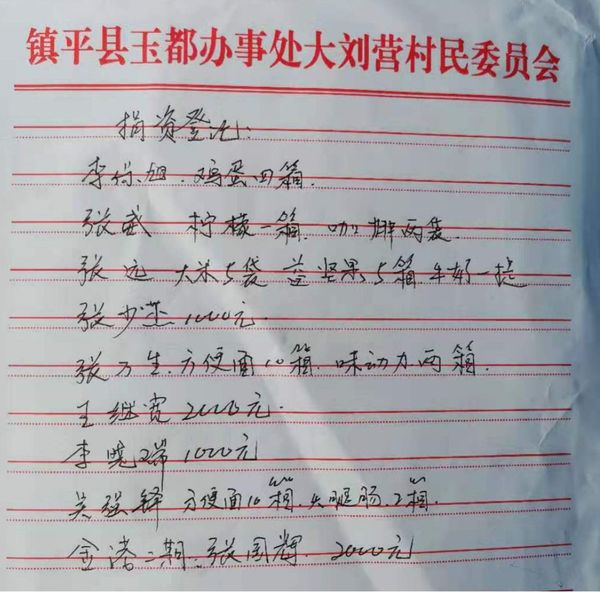 镇平县玉都办事处大刘营村民委员会
捐资登记:
李保旭.鸡蛋四箱.
张武 柠檬一箱. 两袋.
张远 大米5袋 坚果5箱.牛奶一提
张少 1000元.
张万生.方便面10箱.味动力两箱.
王继宽2000元.
李晓瑞1000元
吴强铎 方便面10箱.火腿肠.2箱.
金港二期.张国辉. 2000元